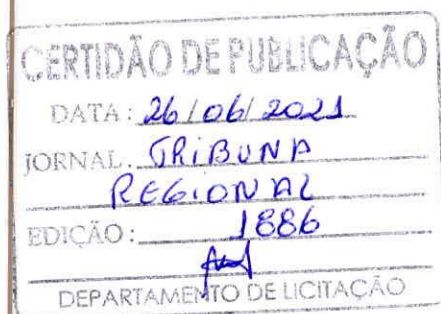 CERTIDÃO DE PUBLICAÇÃO
DATA: 26/06/2021
JORNAL: TRIBUNA
REGIONAL
EDIÇÃO: 1886
DEPARTAMENTO DE LICITAÇÃO